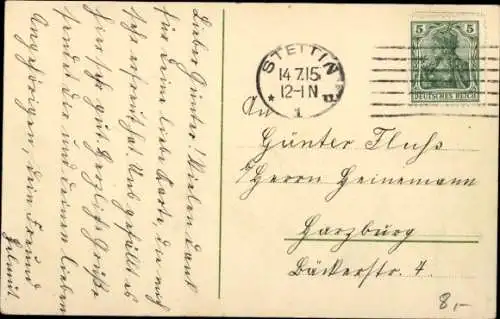 Lieber Günter! Vielen Dank
für deine liebe Karte, die mich
sehr erfreut hat. Uns gefällt es
hier sehr gut. Herzliche Grüße
sendet dir und deinen lieben
Angehörigen, dein Freund
Helmut
STETTIN
14.7.15
12-1N
* 1
5 5
DEUTSCHES REICH
An
Günter Fluhs
b/Herrn Heinemann
Harzburg
Bäckerstr. 7.
8,-